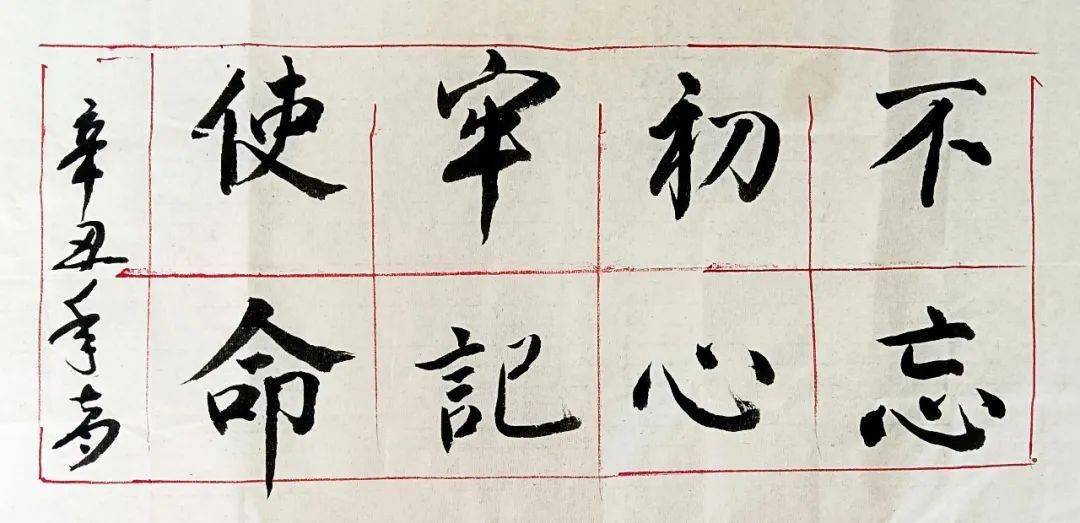 不忘
初心
牢記
使命
辛丑年